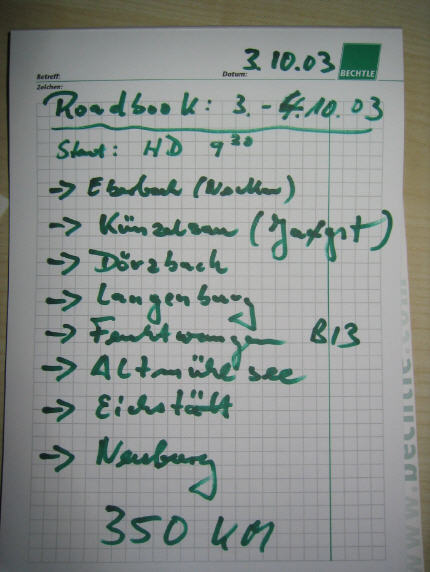 Betreff:
Datum: 3.10.03
BECHTLE
Zeichen:
Roadbook: 3.-4.10.03
Start: HD 9³⁰
→ Eberbach (Neckar)
→ Künzelsau (Jaxgst)
→ Dörzbach
→ Langenburg
→ Feuchtwangen B13
→ Altmühlsee
→ Eichstätt
→ Neuburg
350 KM
www.bechtle.com